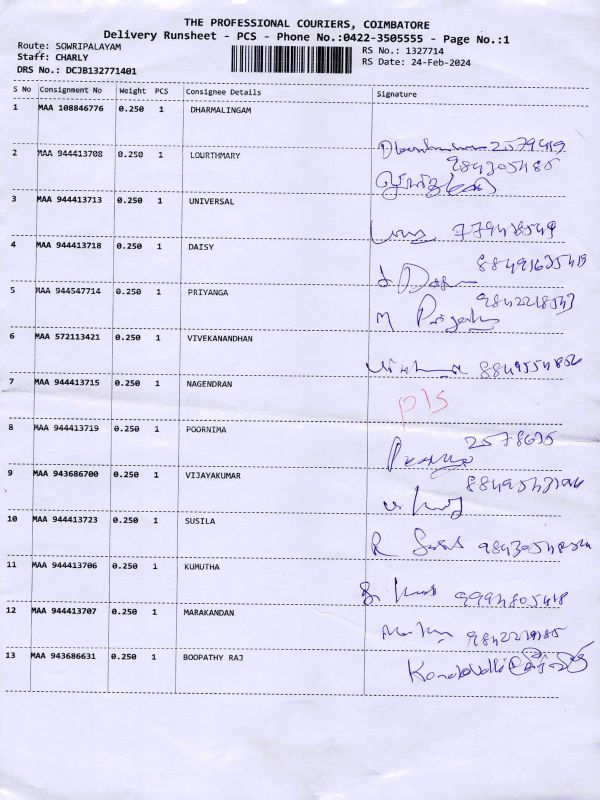 THE PROFESSIONAL COURIERS, COIMBATORE
Delivery Runsheet - PCS - Phone No.:0422-3505555 - Page No.:1
Route: SOWRIPALAYAM
Staff: CHARLY
DRS No.: DCJB132771401
RS No.: 1327714
RS Date: 24-Feb-2024
S No Consignment No Weight PCS Consignee Details Signature
1 MAA 108846776 0.250 1 DHARMALINGAM
2579419
2 MAA 944413708 0.250 1 LOURTHMARY
984305485
3 MAA 944413713 0.250 1 UNIVERSAL
779478549
4 MAA 944413718 0.250 1 DAISY
5 MAA 944547714 0.250 1 PRIYANGA
M Priyanka
6 MAA 572113421 0.250 1 VIVEKANANDHAN
7 MAA 944413715 0.250 1 NAGENDRAN
P/S
8 MAA 944413719 0.250 1 POORNIMA
2578635
9 MAA 943686700 0.250 1 VIJAYAKUMAR
10 MAA 944413723 0.250 1 SUSILA
R
11 MAA 944413706 0.250 1 KUMUTHA
9994805418
12 MAA 944413707 0.250 1 MARAKANDAN
13 MAA 943686631 0.250 1 BOOPATHY RAJ